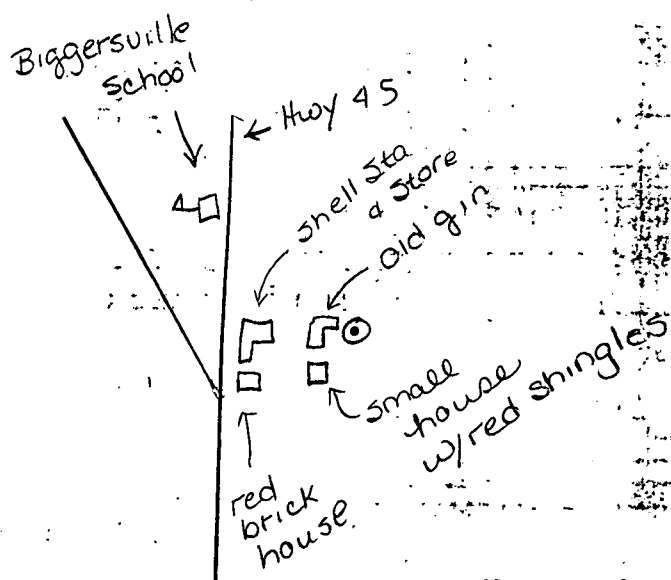 Biggersville
school
Hwy 45
Shell Sta
& Store
old gin
small
house
w/red shingles
red
brick
house